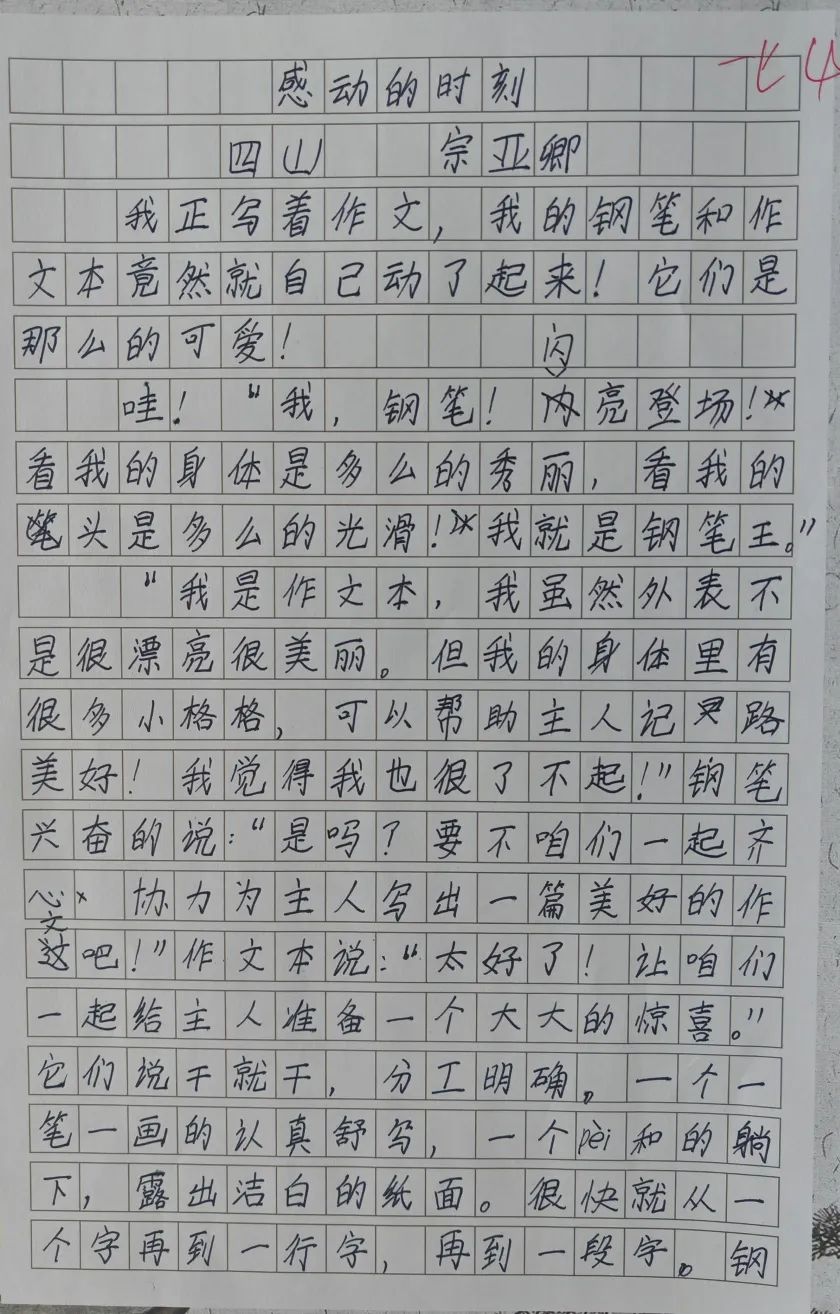 感动的时刻
四(1) 宗亚卿
我正写着作文，我的钢笔和作
文本竟然就自己动了起来！它们是
那么的可爱！
闪
哇！“我，钢笔！亮登场！
看我的身体是多么的秀丽，看我的
笔头是多么的光滑！我就是钢笔王。”
“我是作文本，我虽然外表不
是很漂亮很美丽。但我的身体里有
很多小格格，可以帮助主人记路
美好！我觉得我也很了不起！”钢笔
兴奋的说：“是吗？要不咱们一起齐
心协力为主人写出一篇美好的作
文
这吧！”作文本说：“太好了！让咱们
一起给主人准备一个大大的惊喜。”
它们说干就干，分工明确。一个一
笔一画的认真舒写，一个pèi和的躺
下，露出洁白的纸面。很快就从一
个字再到一行字，再到一段字。钢